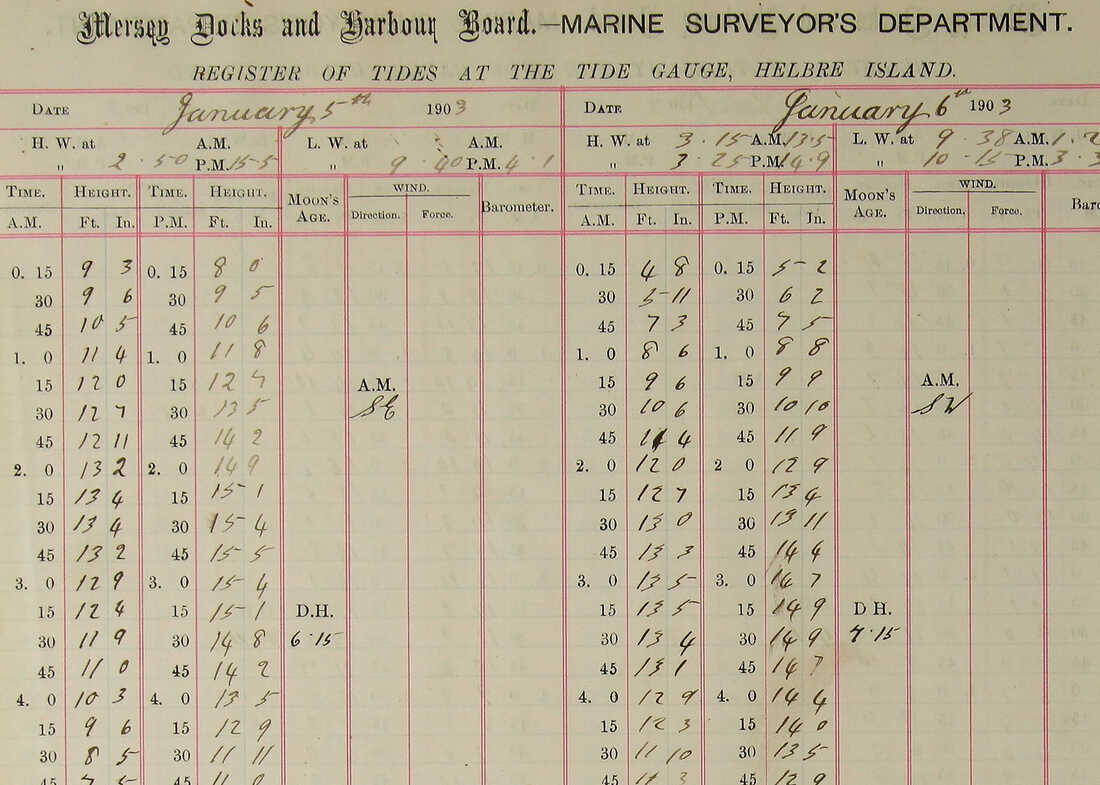 Mersey Docks and Harbour Board.—MARINE SURVEYOR'S DEPARTMENT.
REGISTER OF TIDES AT THE TIDE GAUGE, HELBRE ISLAND.
DATE January 5th 1903 DATE January 6th 1903
H. W. at A.M. L. W. at A.M. H. W. at 3.15 A.M. 13.5 L. W. at 9.38 A.M. 1.2
„ 2.50 P.M. 15.5 „ 9.40 P.M. 4.1 „ 3.25 P.M. 14.9 „ 10.15 P.M. 3.3
TIME. HEIGHT. TIME. HEIGHT. MOON'S AGE. WIND. Barometer. TIME. HEIGHT. TIME. HEIGHT. MOON'S AGE. WIND. Baro
A.M. Ft. In. P.M. Ft. In. Direction. Force. A.M. Ft. In. P.M. Ft. In. Direction. Force.
0. 15 9 3 0. 15 8 0 0. 15 4 8 0. 15 5 2
30 9 6 30 9 5 30 5 11 30 6 2
45 10 5 45 10 6 45 7 3 45 7 5
1. 0 11 4 1. 0 11 8 1. 0 8 6 1. 0 8 8
15 12 0 15 12 7 A.M. 15 9 6 15 9 9 A.M.
30 12 7 30 13 5 SE 30 10 6 30 10 10 SW
45 12 11 45 14 2 45 11 4 45 11 9
2. 0 13 2 2. 0 14 9 2. 0 12 0 2 0 12 9
15 13 4 15 15 1 15 12 7 15 13 4
30 13 4 30 15 4 30 13 0 30 13 11
45 13 2 45 15 5 45 13 3 45 14 4
3. 0 12 9 3. 0 15 4 3. 0 13 5 3. 0 14 7
15 12 4 15 15 1 D.H. 15 13 5 15 14 9 D H.
30 11 9 30 14 8 6.15 30 13 4 30 14 9 7.15
45 11 0 45 14 2 45 13 1 45 14 7
4. 0 10 3 4. 0 13 5 4. 0 12 9 4. 0 14 4
15 9 6 15 12 9 15 12 3 15 14 0
30 8 5 30 11 11 30 11 10 30 13 5
45 7 5 45 11 0 45 11 3 45 12 9